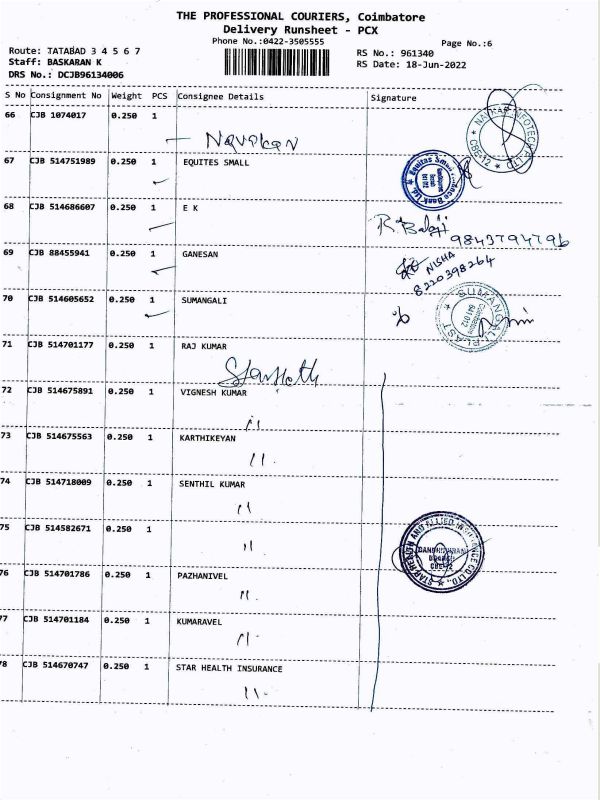 THE PROFESSIONAL COURIERS, Coimbatore
Delivery Runsheet - PCX
Phone No.:0422-3505555
Page No.:6
Route: TATABAD 3 4 5 6 7
RS No.: 961340
Staff: BASKARAN K
RS Date: 18-Jun-2022
DRS No.: DCJB96134006
S No Consignment No Weight PCS Consignee Details Signature
66 CJB 1074017 0.250 1
67 CJB 514751989 0.250 1 EQUITES SMALL
68 CJB 514686607 0.250 1 E K
R. Balaji
9843794796
69 CJB 88455941 0.250 1 GANESAN
NISHA
8220398264
70 CJB 514605652 0.250 1 SUMANGALI
SUMANGALI PLAST
Coimbatore
641 012
71 CJB 514701177 0.250 1 RAJ KUMAR
72 CJB 514675891 0.250 1 VIGNESH KUMAR
11
73 CJB 514675563 0.250 1 KARTHIKEYAN
11.
74 CJB 514718009 0.250 1 SENTHIL KUMAR
11
75 CJB 514582671 0.250 1
11
STAR HEALTH AND ALLIED INSURANCE CO LTD.,
76 CJB 514701786 0.250 1 PAZHANIVEL
11.
77 CJB 514701184 0.250 1 KUMARAVEL
11.
78 CJB 514670747 0.250 1 STAR HEALTH INSURANCE
11.